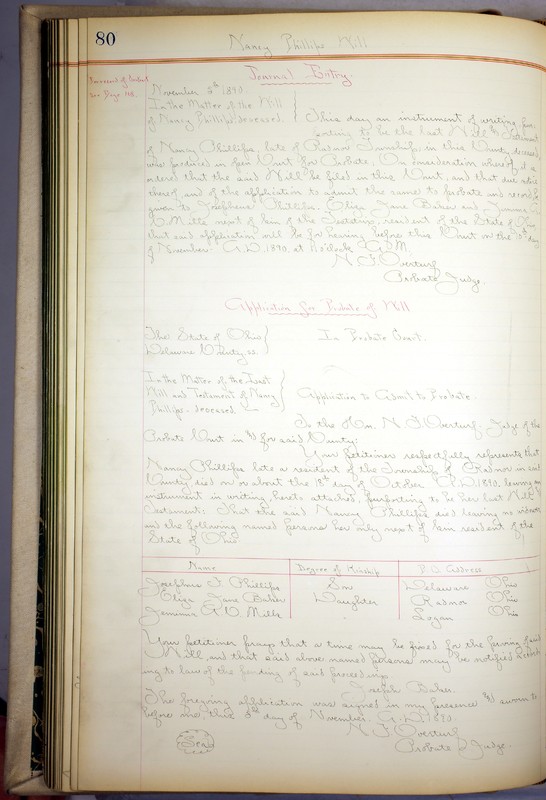 80
Nancy Phillips Will
Journal Entry.
November 5th 1890.
In the Matter of the Will
of Nancy Phillips deceased.
This day an instrument of writing, pur-
porting to be the last Will & Testament
of Nancy Phillips, late of Radnor Township, in this County, deceased,
was produced in open Court for Probate. On consideration whereof, it is
ordered that the said Will be filed in this Court, and that due notice
thereof, and of the application to admit the same to probate and record, be
given to Josephus Phillips, Eliza Jane Baker and Jemima
Mills next of kin of the Testatrix, resident of the State of Ohio,
that said application will be for hearing before this Court on the 10th day
of November A.D. 1890, at 1 o'clock P.M.
N. F. Overturf
Probate Judge.
Application for Probate of Will
The State of Ohio
Delaware County, ss.
In Probate Court.
In the Matter of the Last
Will and Testament of Nancy
Phillips, deceased
Application to Admit to Probate.
To the Hon. N. F. Overturf, Judge of the
Probate Court in & for said County:
Your petitioner respectfully represents that
Nancy Phillips late a resident of the Township of Radnor in said
County, died on or about the 18th day of October A.D. 1890, leaving an
instrument in writing, hereto attached, purporting to be her last Will &
Testament; That the said Nancy Phillips died leaving no widower
and the following named persons her only next of kin resident of the
State of Ohio.
Name Degree of Kinship P.O. Address
Josephus Phillips Son Delaware Ohio
Eliza Jane Baker Daughter Radnor Ohio
Jemima Mills " Logan Ohio
Your petitioner prays that a time may be fixed for the proving of said
Will, and that said above named persons may be notified accord-
ing to law of the pending of said proceedings.
Joseph Baker.
The foregoing application was signed in my presence & sworn to
before me, this 5th day of November A.D. 1890.
N. F. Overturf
Probate Judge.
Seal